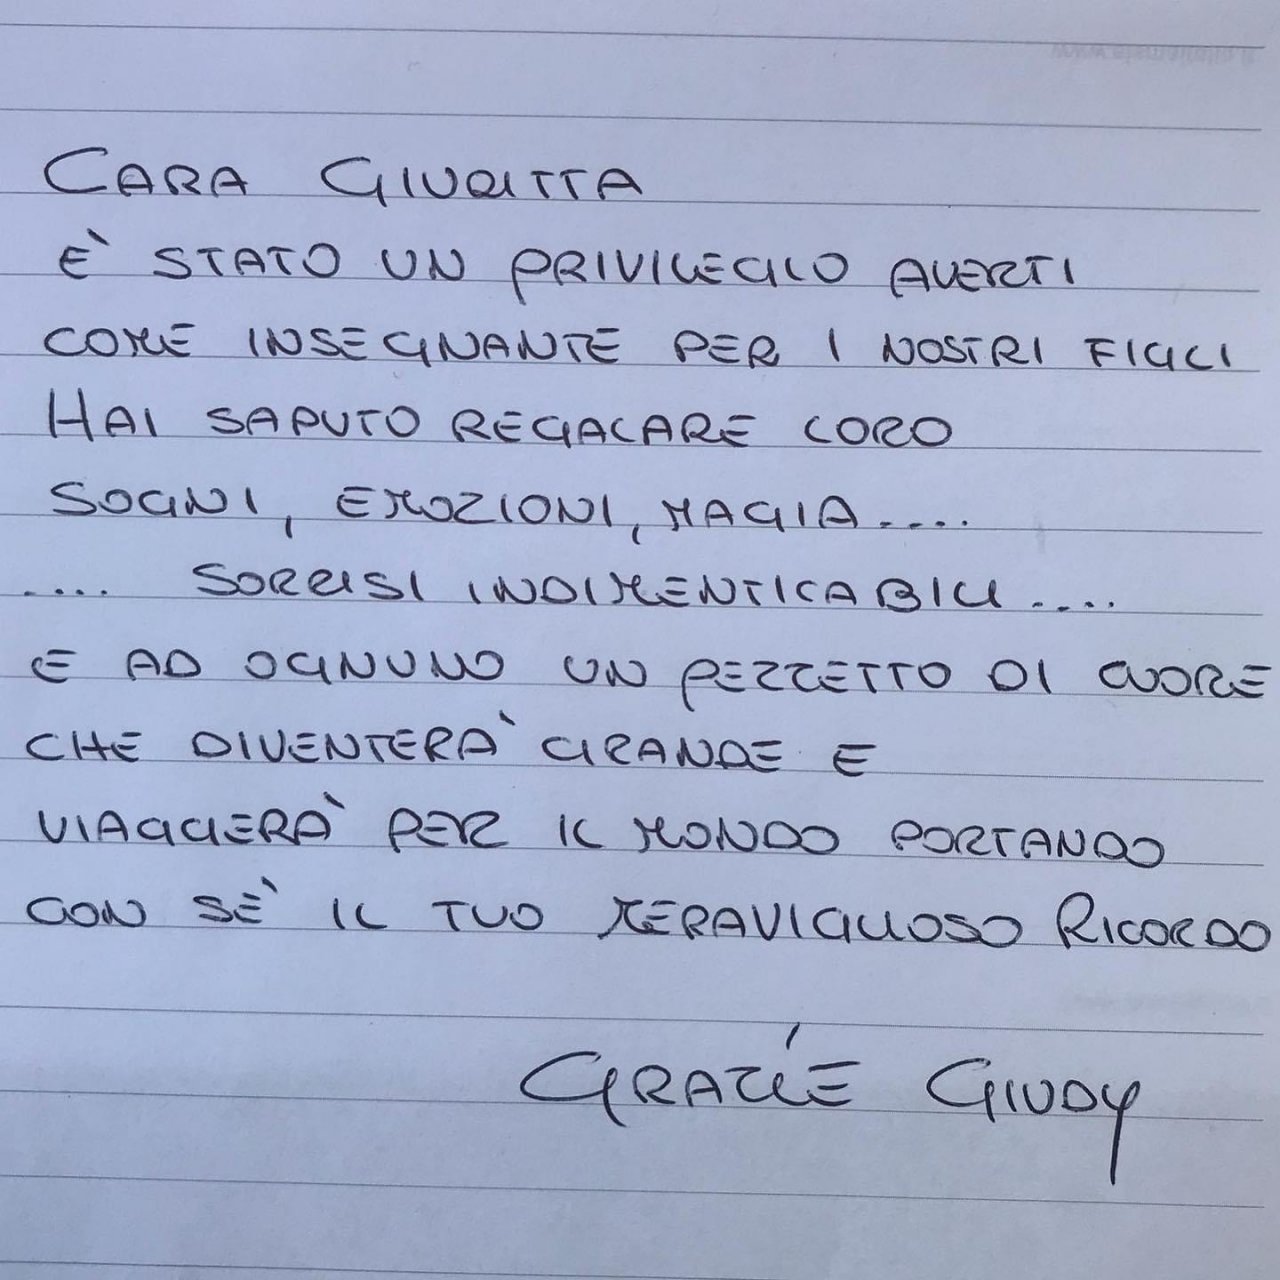 CARA GIUDITTA
È STATO UN PRIVILEGIO AVERTI
COME INSEGNANTE PER I NOSTRI FIGLI
HAI SAPUTO REGALARE LORO
SOGNI, EMOZIONI, MAGIA....
.... SORRISI INDIMENTICABILI....
E AD OGNUNO UN PEZZETTO DI CUORE
CHE DIVENTERÀ GRANDE E
VIAGGERÀ PER IL MONDO PORTANDO
CON SÈ IL TUO MERAVIGLIOSO RICORDO
GRAZIE GIUDY